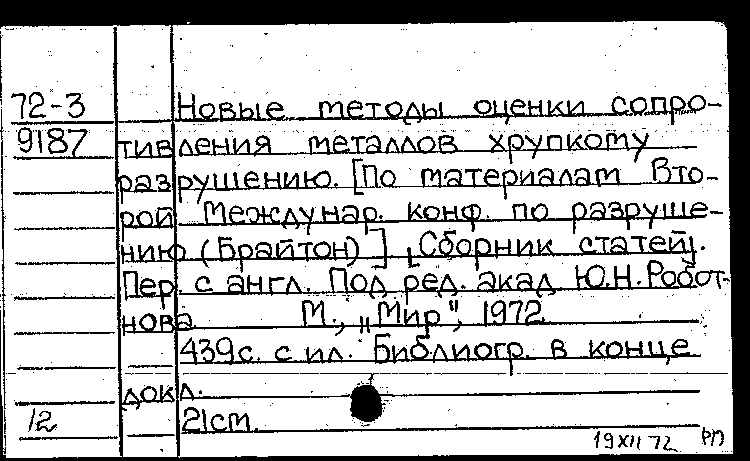 72-3 Новые методы оценки сопро-
9187 тивления металлов хрупкому
разрушению. [По материалам Вто-
рой Междунар. конф. по разруше-
нию (Брайтон)] [Сборник статей].
Пер. с англ. Под ред. акад. Ю.Н. Работ-
нова М., „Мир", 1972
439с. с ил. Библиогр. в конце
докл.
12 21см.
19 XII 72 РП